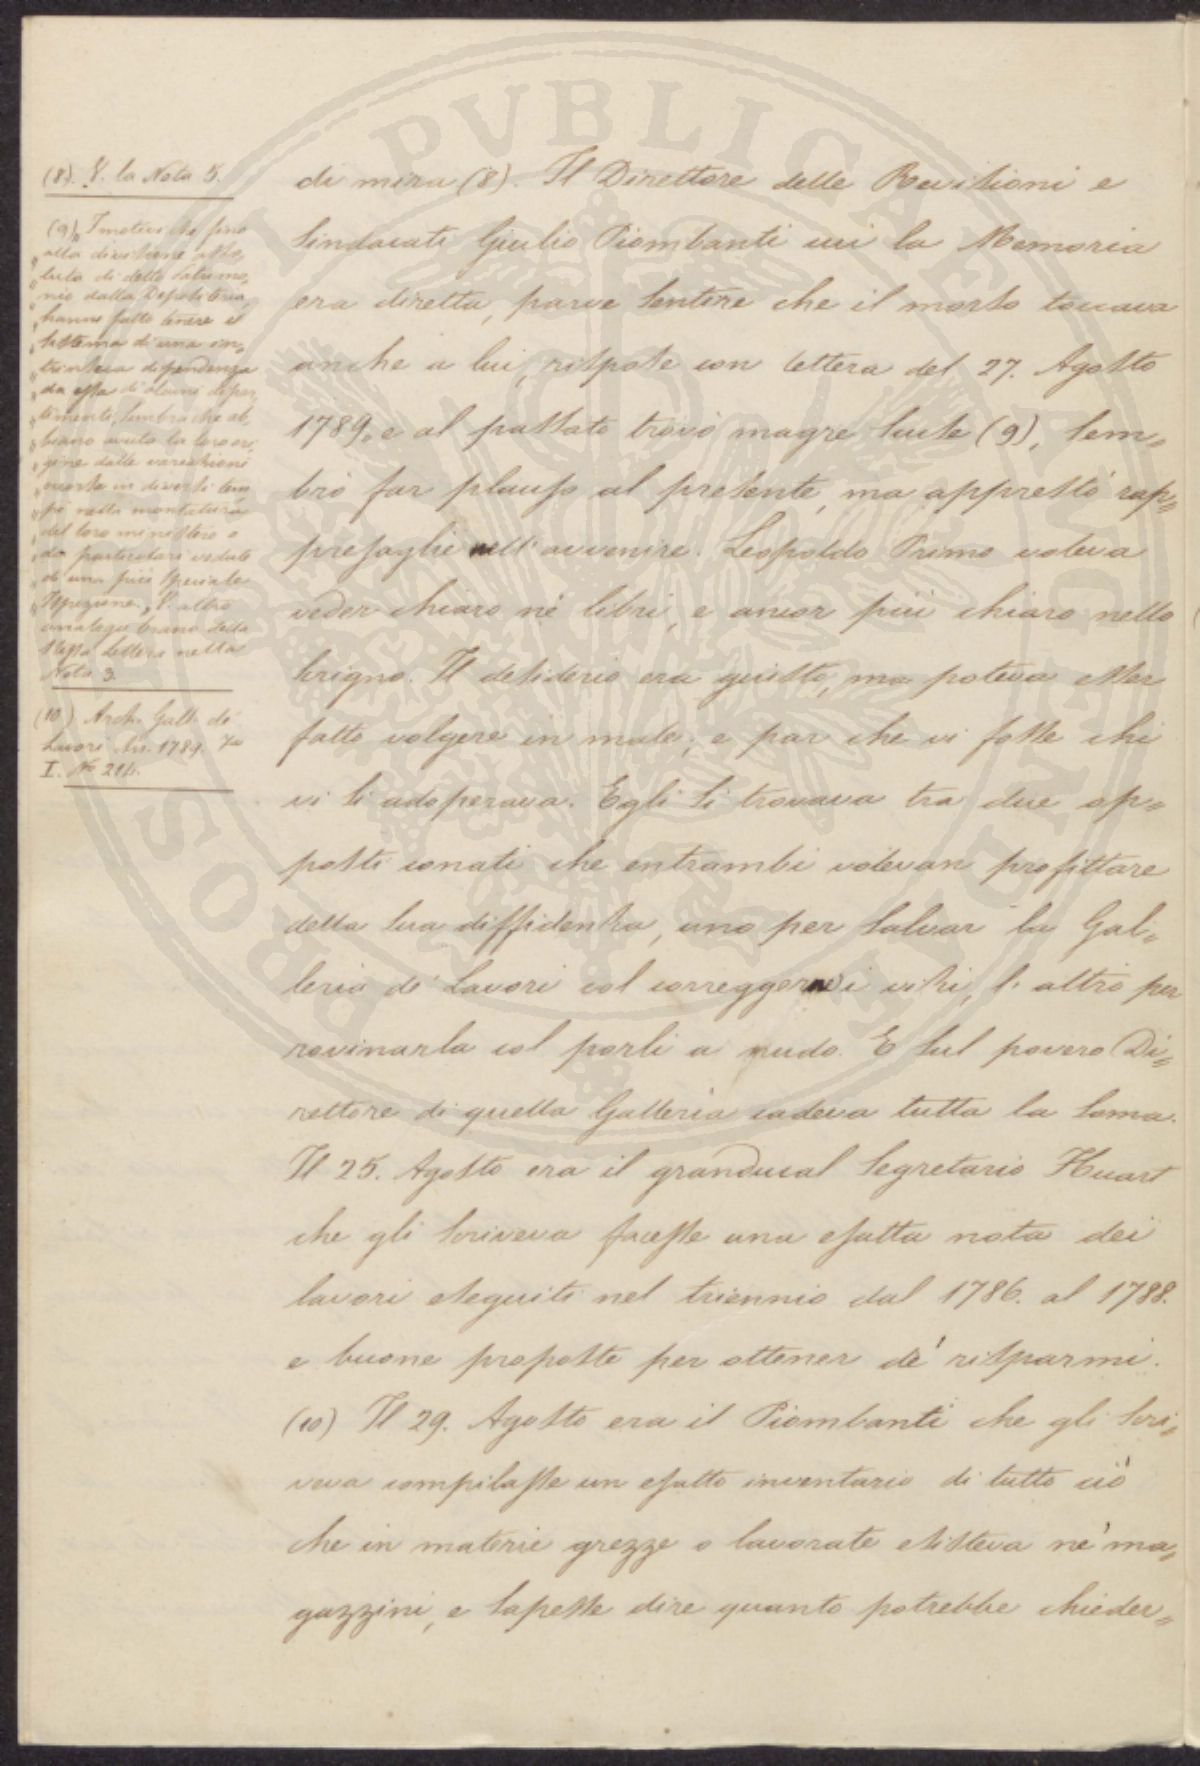 (8). V. la Nota 5.
(9) „I motivi che fino
„alla divisione asso„
„luta di detto Patrimo„
„nio dalla Depositeria
„hanno fatto tenere il
„sistema di una in„
„trinseca dipendenza
„da essa di alcuni dipar„
„timenti, sembra che ab„
„biano avuto la loro ori„
„gine dalle variazioni
„occorse in diversi tem„
„pi nella montatura
„del loro ministero o
„da particolari vedute
„di una più speciale
„Ispezione„. V. altro
analogo brano della
stessa lettera nella
Nota 3.
(10) Arch. Gall. de'
Lavori An. 1789. Fa
I. No 214.
di mira (8). Il Direttore delle Revisioni e
Sindacati Giulio Piombanti cui la Memoria
era diretta, parve sentire che il morso toccava
anche a lui, rispose con lettera del 27. Agosto
1789, e al passato trovò magre scuse (9), sem„
brò far plauso al presente, ma appresto' rap„
presaglie nell'avvenire. Leopoldo Primo voleva
veder chiaro nè libri, e ancor più chiaro nello
scrigno. Il desiderio era giusto, ma poteva esser
fatto volgere in male; e par che vi fosse chi
vi si adoperava. Egli si trovava tra due op„
posti conati che entrambi volevan profittare
della sua diffidenza, uno per salvar la Gal„
leria de' Lavori col correggerne i vizi, l'altro per
rovinarla col porli a nudo. E sul povero Di„
rettore di quella Galleria cadeva tutta la soma.
Il 25. Agosto era il granducal Segretario Huart
che gli scriveva facesse una esatta nota dei
lavori eseguiti nel triennio dal 1786. al 1788.
e buone proposte per ottener de' risparmi.
(10) Il 29. Agosto era il Piombanti che gli scri„
veva compilasse un esatto inventario di tutto ciò
che in materie grezze o lavorate esisteva ne' ma„
gazzini, e sapesse dire quanto potrebbe chieder„